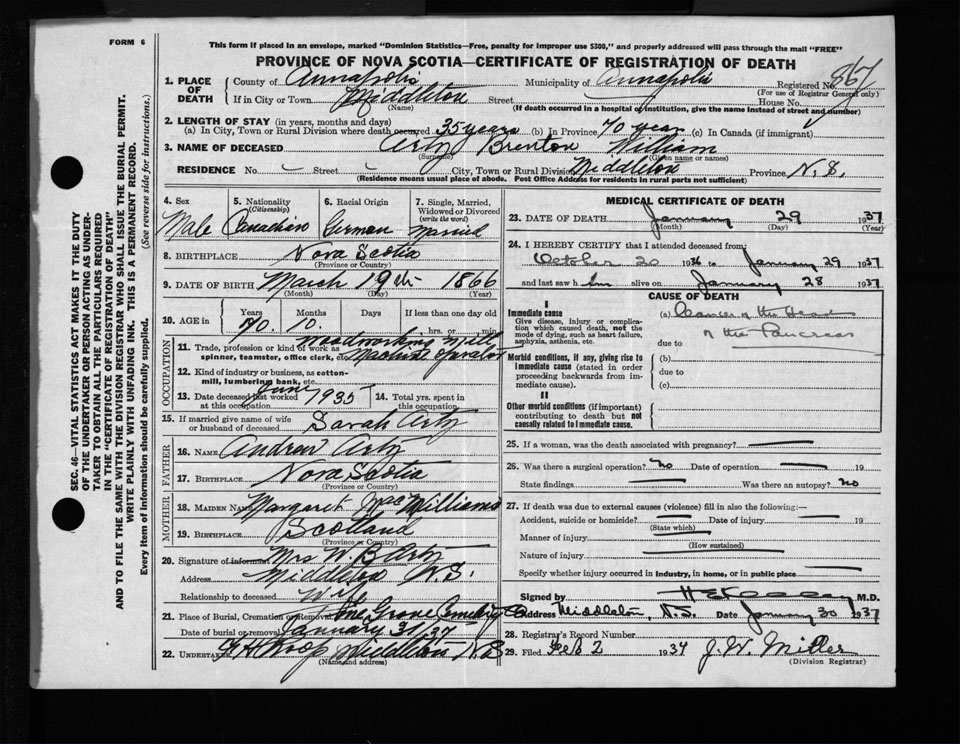 FORM 6
This form if placed in an envelope, marked "Dominion Statistics—Free, penalty for improper use $300," and properly addressed will pass through the mail "FREE"
PROVINCE OF NOVA SCOTIA—CERTIFICATE OF REGISTRATION OF DEATH
1. PLACE OF DEATH County of Annapolis Municipality of Annapolis Registered No. 867
(For use of Registrar General only)
If in City or Town Middleton Street House No.
(Name) (If death occurred in a hospital or institution, give the name instead of street and number)
2. LENGTH OF STAY (in years, months and days)
(a) In City, Town or Rural Division where death occurred 35 years (b) In Province 70 year (c) In Canada (if immigrant)
3. NAME OF DECEASED Arty Brenton William
(Surname) (Given name or names)
RESIDENCE No. Street City, Town or Rural Division Middleton Province N.S.
(Residence means usual place of abode. Post Office Address for residents in rural parts not sufficient)
SEC. 46—VITAL STATISTICS ACT MAKES IT THE DUTY
OF THE UNDERTAKER OR PERSON ACTING AS UNDER-
TAKER TO OBTAIN ALL THE PARTICULARS REQUIRED
IN THE "CERTIFICATE OF REGISTRATION OF DEATH"
AND TO FILE THE SAME WITH THE DIVISION REGISTRAR WHO SHALL ISSUE THE BURIAL PERMIT.
WRITE PLAINLY WITH UNFADING INK. THIS IS A PERMANENT RECORD.
Every item of information should be carefully supplied. (See reverse side for instructions.)
4. Sex 5. Nationality (Citizenship) 6. Racial Origin 7. Single, Married, Widowed or Divorced (write the word)
Male Canadian German Married
8. BIRTHPLACE Nova Scotia
(Province or Country)
9. DATE OF BIRTH March 19th 1866
(Month) (Day) (Year)
10. AGE in Years Months Days If less than one day
70. 10. hrs. or min.
OCCUPATION
11. Trade, profession or kind of work as spinner, teamster, office clerk, etc. Woodworking Mill Machine Operator
12. Kind of industry or business, as cotton-mill, lumbering bank, etc.
13. Date deceased last worked at this occupation June 1935 14. Total yrs. spent in this occupation
15. If married give name of wife or husband of deceased Sarah Arty
FATHER
16. NAME Andrew Arty
17. BIRTHPLACE Nova Scotia
(Province or Country)
MOTHER
18. MAIDEN NAME Margaret MacWilliams
19. BIRTHPLACE Scotland
(Province or Country)
20. Signature of informant Mrs W. B. Arty
Address Middleton N.S.
Relationship to deceased Wife
21. Place of Burial, Cremation or Removal Pine Grove Cemetery
Date of burial or removal January 31/37
22. UNDERTAKER Middleton N.S
(Name and address)
MEDICAL CERTIFICATE OF DEATH
23. DATE OF DEATH January 29 1937
(Month) (Day) (Year)
24. I HEREBY CERTIFY that I attended deceased from:
October 20 1936 to January 29 1937
and last saw him alive on January 28 1937
CAUSE OF DEATH
I
Immediate cause (a) Cancer of the Head
Give disease, injury or complication which caused death, not the mode of dying, such as heart failure, asphyxia, asthenia, etc.
of the Pancreas
due to
Morbid conditions, if any, giving rise to immediate cause (stated in order proceeding backwards from immediate cause).
(b)
due to
(c)
II
Other morbid conditions (if important) contributing to death but not causally related to immediate cause.
25. If a woman, was the death associated with pregnancy?
26. Was there a surgical operation? No Date of operation 19
State findings Was there an autopsy? No
27. If death was due to external causes (violence) fill in also the following:—
Accident, suicide or homicide? Date of injury 19
(State which)
Manner of injury
(How sustained)
Nature of injury
Specify whether injury occurred in Industry, in home, or in public place
Signed by M.D.
Address Middleton, N.S. Date January 30 1937
28. Registrar's Record Number
29. Filed Feb 2 1937 J. W. Miller
(Division Registrar)